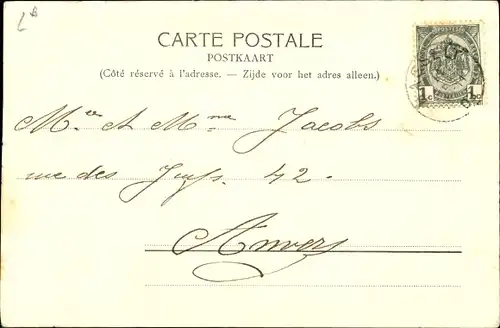 CARTE POSTALE
POSTKAART
(Côté réservé à l'adresse. — Zijde voor het adres alleen.)
1c 1c
Mr et Mme Jacobs
rue des 42.
Anvers